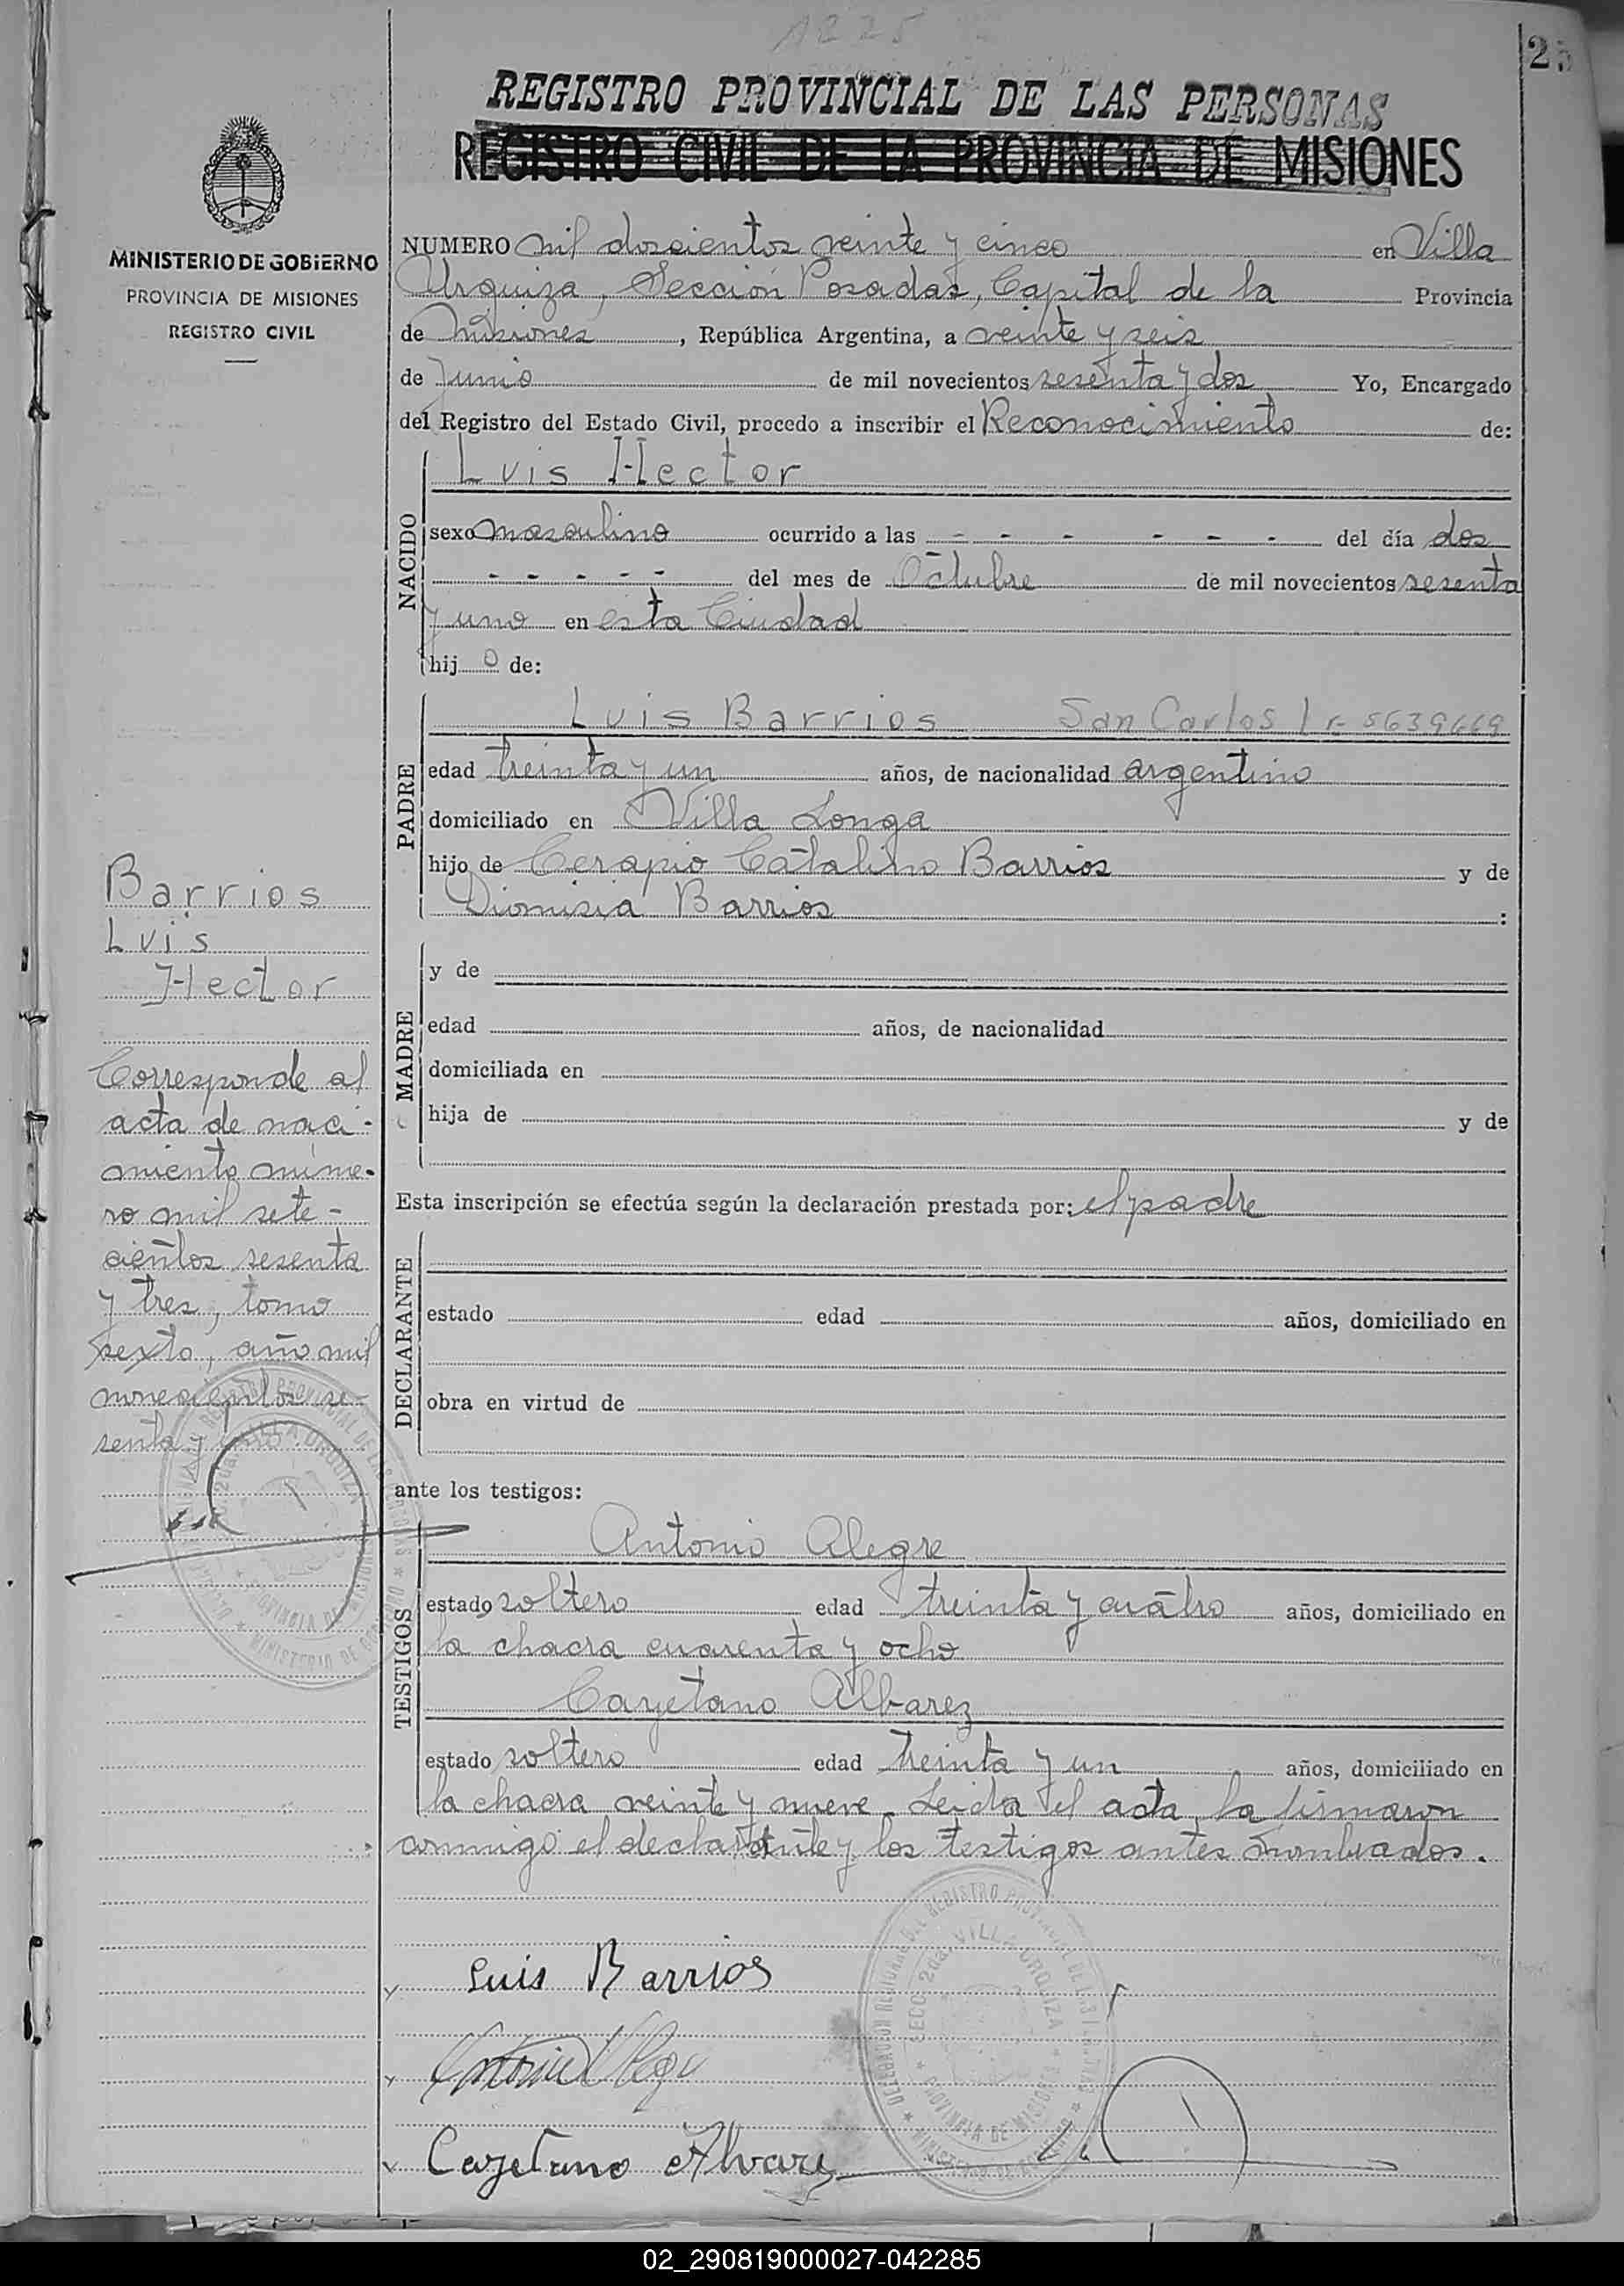 1225
25
REGISTRO PROVINCIAL DE LAS PERSONAS
REGISTRO CIVIL DE LA PROVINCIA DE MISIONES
MINISTERIO DE GOBIERNO
PROVINCIA DE MISIONES
REGISTRO CIVIL
NUMERO mil doscientos veinte y cinco en Villa
Urquiza, Sección Posadas, Capital de la Provincia
de Misiones, República Argentina, a veinte y seis
de Junio de mil novecientos sesenta y dos Yo, Encargado
del Registro del Estado Civil, procedo a inscribir el Reconocimiento de:
NACIDO
Luis Hector
sexo masculino ocurrido a las - - - - - - del día dos
- - - - - del mes de Octubre de mil novecientos sesenta
y uno en esta Ciudad
hijo de:
PADRE
Luis Barrios San Carlos
edad treinta y un años, de nacionalidad argentino
domiciliado en Villa Longa
hijo de Cerapio Catalino Barrios y de
Dionisia Barrios :
MADRE
y de
edad años, de nacionalidad
domiciliada en
hija de y de
Barrios
Luis
Hector
Corresponde al
acta de naci-
miento núme-
ro mil sete-
cientos sesenta
y tres, tomo
sexto, año mil
novecientos se-
senta y uno.
Esta inscripción se efectúa según la declaración prestada por: el padre
DECLARANTE
estado edad años, domiciliado en
obra en virtud de
ante los testigos:
TESTIGOS
Antonio Alegre
estado soltero edad treinta y cuatro años, domiciliado en
la chacra cuarenta y ocho
Cayetano Albarez
estado soltero edad treinta y un años, domiciliado en
la chacra veinte y nueve. Leida el acta, la firmaron
conmigo el declarante y los testigos antes nombrados.
Luis Barrios
Cayetano Alvarez
SECC. 2da. VILLA URQUIZA
PROVINCIA DE MISIONES
02_290819000027-042285